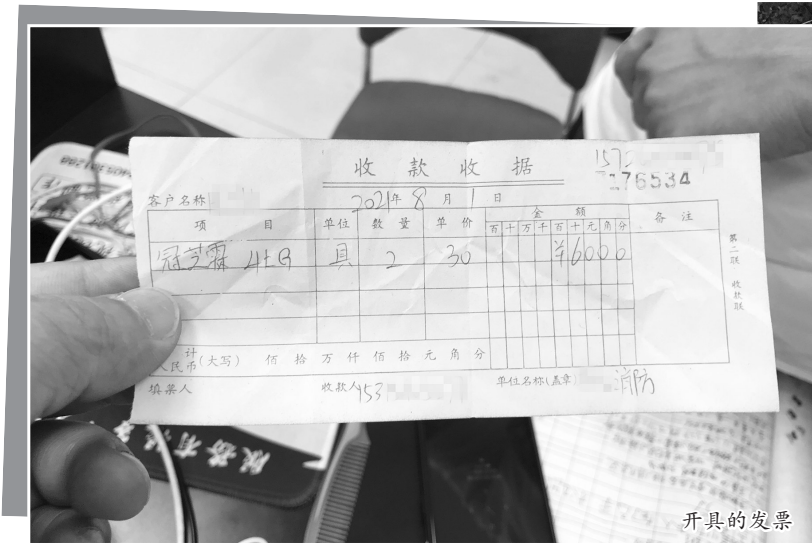 收款收据
157
76534
客户名称
2021年8月1日
项目 单位 数量 单价 金额 备注
百十万千百十元角分
冠芝霖 4kg 具 2 30 ¥6000
第二联 收款联
计
人民币(大写) 佰 拾 万 仟 佰 拾 元 角 分
填票人 收款人 153 单位名称(盖章) 消防
服务有限
开具的发票